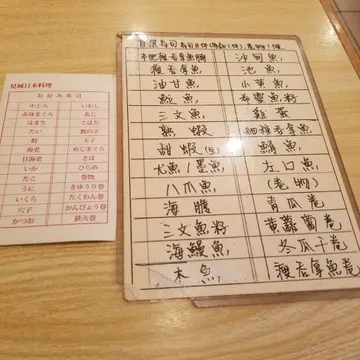 見城日本料理
お好み寿司
中とろ いわし
赤身まぐろ あじ
はまち こはだ
たい 数の子
鮭 玉子
海老 めじまぐろ
甘海老 さば
いか ひらめ
たこ 巻物
うに きゅうり巻
いくら たくわん巻
穴子 かんぴょう巻
かつお 鉄火巻
中肥瘦吞拿魚腩 沙甸魚
瘦吞拿魚 池魚
油甘魚 小黃魚
鯇魚 希靈魚籽
三文魚 雞蛋
熟蝦 細種吞拿魚
甜蝦(生) 鯖魚
尤魚/墨魚 左口魚
八爪魚 (卷物)
海膽 青瓜卷
三文魚籽 黃蘿蔔卷
海鰻魚 冬瓜干卷
木魚 瘦吞拿魚卷